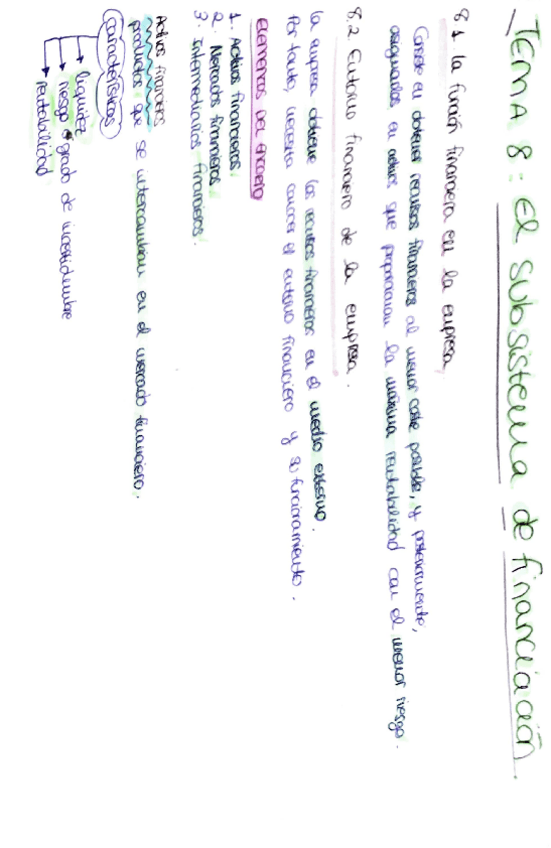 TEMA 8: El subsistema de financiación.
8.1. La función financiera en la empresa.
Consiste en obtener recursos financieros al menor coste posible, y posteriormente,
asignarlos en activos que proporcionan la máxima rentabilidad con el menor riesgo.
8.2 Entorno financiero de la empresa.
La empresa obtiene los recursos financieros en el medio externo.
Por tanto, necesita conocer el entorno financiero y su funcionamiento.
Elementos del entorno
1. Activos financieros.
2. Mercados financieros
3. Intermediarios financieros.
Activos financieros
productos que se intercambian en el mercado financiero.
características
liquidez
riesgo grado de incertidumbre
rentabilidad